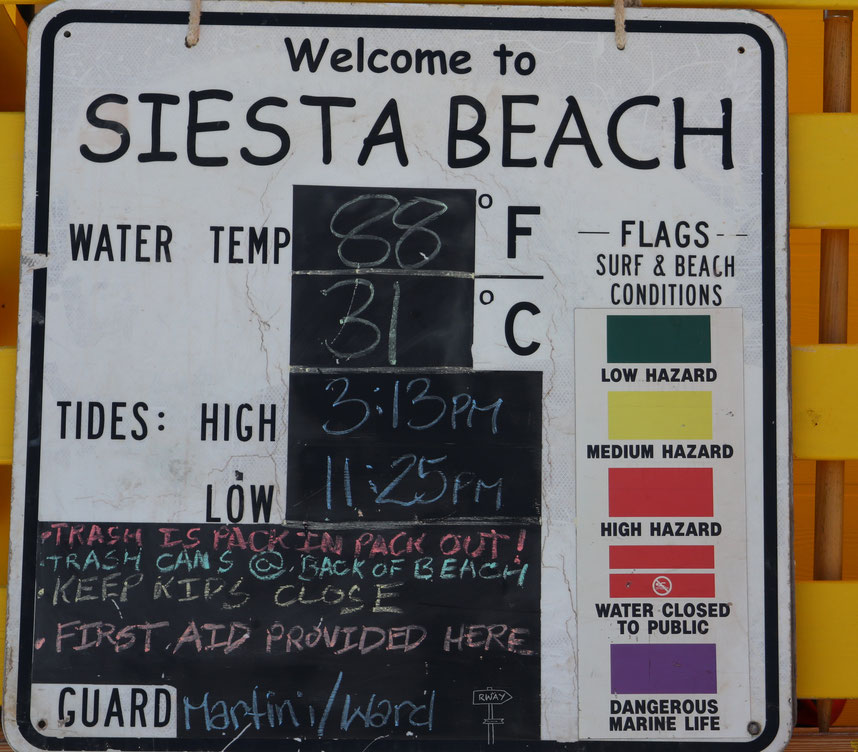 Welcome to
SIESTA BEACH
WATER TEMP 88 °F
31 °C
TIDES: HIGH 3:13PM
LOW 11:25PM
• TRASH IS PACK IN PACK OUT!
• TRASH CANS @ BACK OF BEACH
• KEEP KIDS CLOSE
• FIRST AID PROVIDED HERE
GUARD Martini/Ward
RWAY
— FLAGS --
SURF & BEACH
CONDITIONS
LOW HAZARD
MEDIUM HAZARD
HIGH HAZARD
WATER CLOSED
TO PUBLIC
DANGEROUS
MARINE LIFE